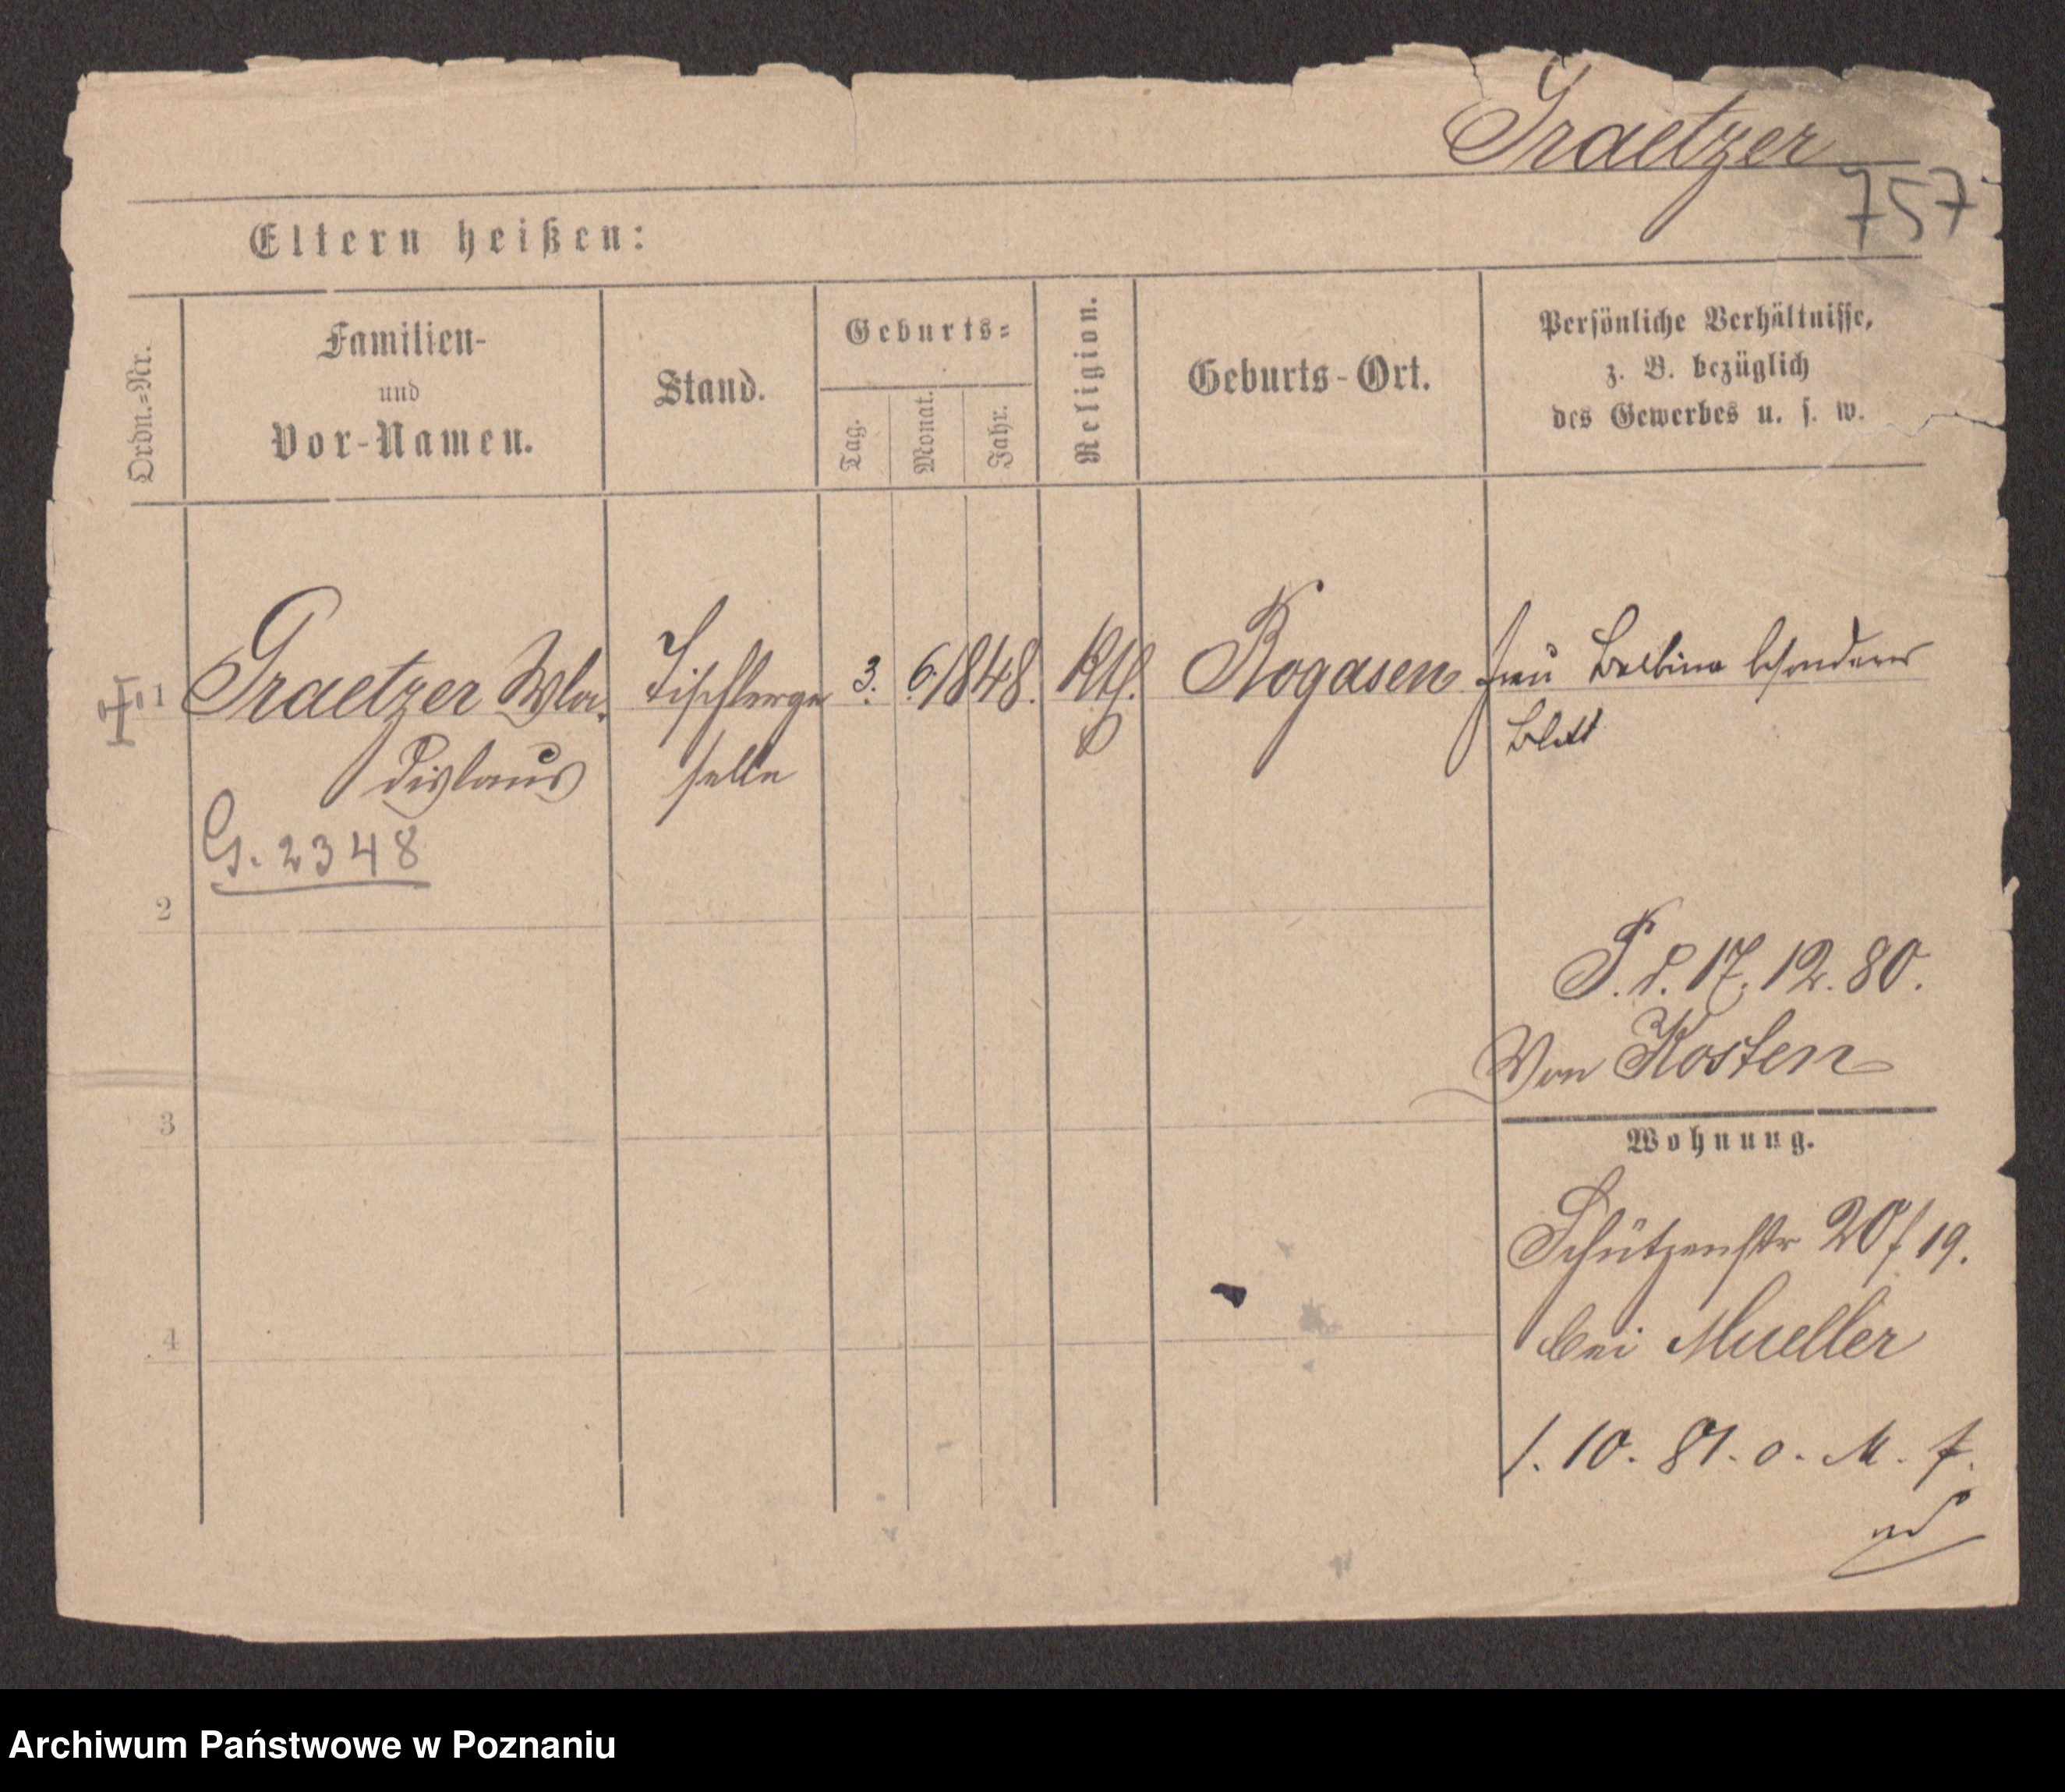 Graetzer
757
Eltern heißen:
Ordn.=Nr.
Familien-
und
Vor-Namen.
Stand.
Geburts=
Tag.
Monat.
Jahr.
Religion.
Geburts-Ort.
Persönliche Verhältnisse,
z. B. bezüglich
des Gewerbes u. s. w.
1 Graetzer Wla- Tischlerge 3. 6. 1848. Kth. Rogasen frau Balbina besonderes
dislaus selle Blatt
G. 2348
2
P. d. 17. 12. 80.
Von Kosten
3
Wohnung.
Schützenstr 20/19.
bei Mueller
4
1. 10. 81. o. M. f.
Archiwum Państwowe w Poznaniu